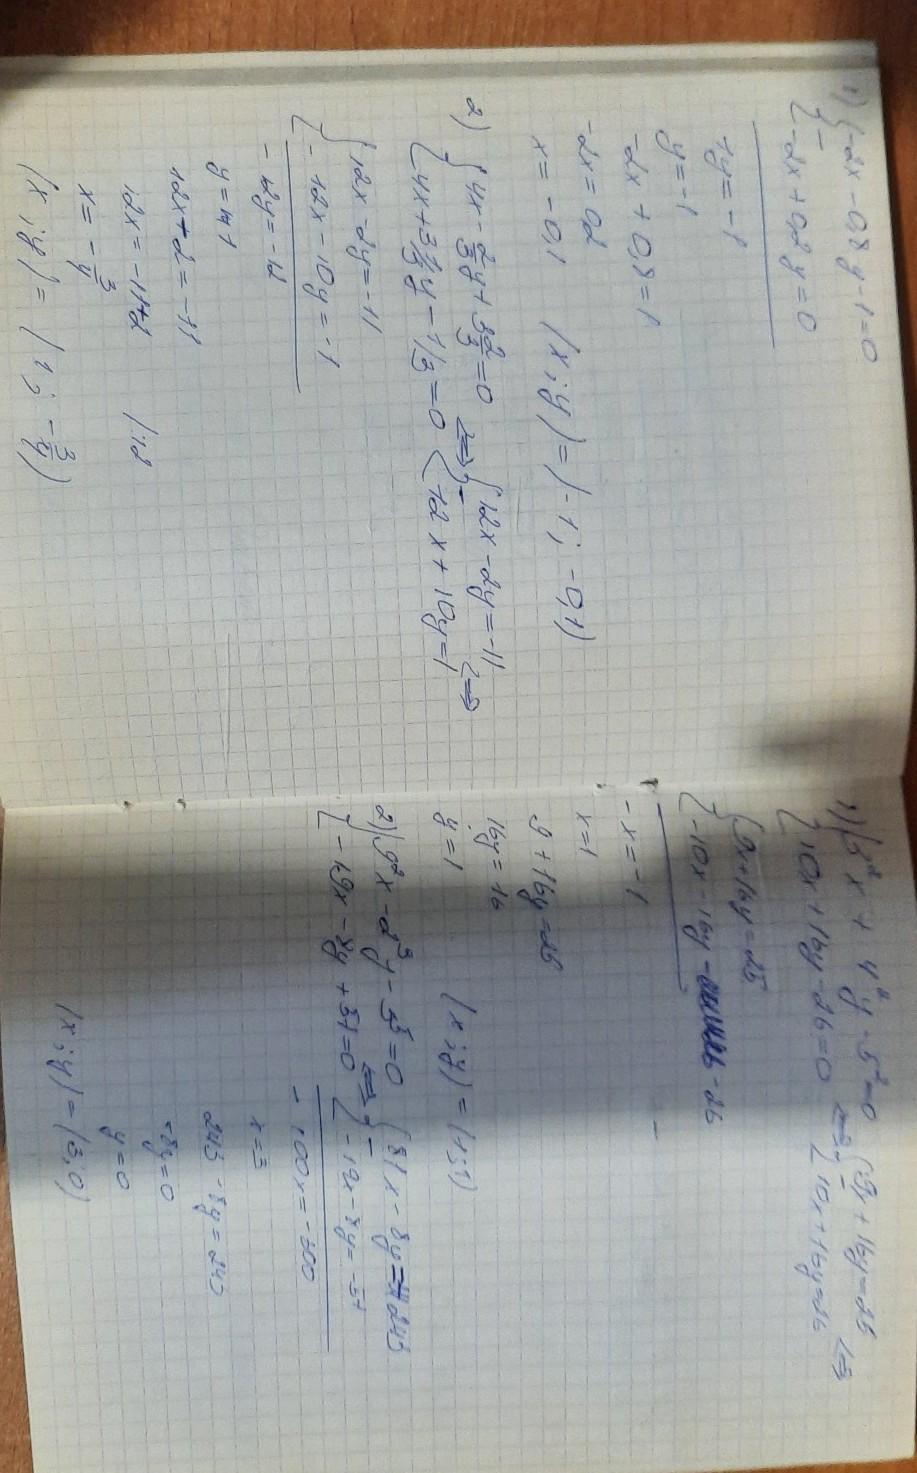 1) { -2x - 0,8y - 1 = 0
{ -2x + 0,2y = 0
y = -1
-2x + 0,8 = 1
-2x = 0,2
x = -0,1 (x; y) = (-1; -0,1)
2) { 4x - 2/3y + 3 2/3 = 0
{ 4x + 3 1/3y - 1/3 = 0
<=> { 12x - 2y = -11
{ 12x + 10y = 1 <=>
{ 12x - 2y = -11
{ -12x - 10y = -1
-12y = -12
y = 1
12x - 2 = -11
12x = -11 + 2 | :12
x = -3/4
(x; y) = (1; -3/4)
1) { 3²x + 4²y - 5² = 0
{ 10x + 16y - 26 = 0
<=> { 9x + 16y = 25
{ 10x + 16y = 26 <=>
{ 9x + 16y = 25
{ -10x - 16y = -26
-x = -1
x = 1
9 + 16y = 25
16y = 16
y = 1 (x; y) = (1; 1)
2) { 9²x - 2³y - 3⁵ = 0
{ -19x - 8y + 57 = 0
<=> { 81x - 8y = 243
{ -19x - 8y = -57
100x = 300
x = 3
243 - 8y = 243
-8y = 0
y = 0
(x; y) = (3; 0)